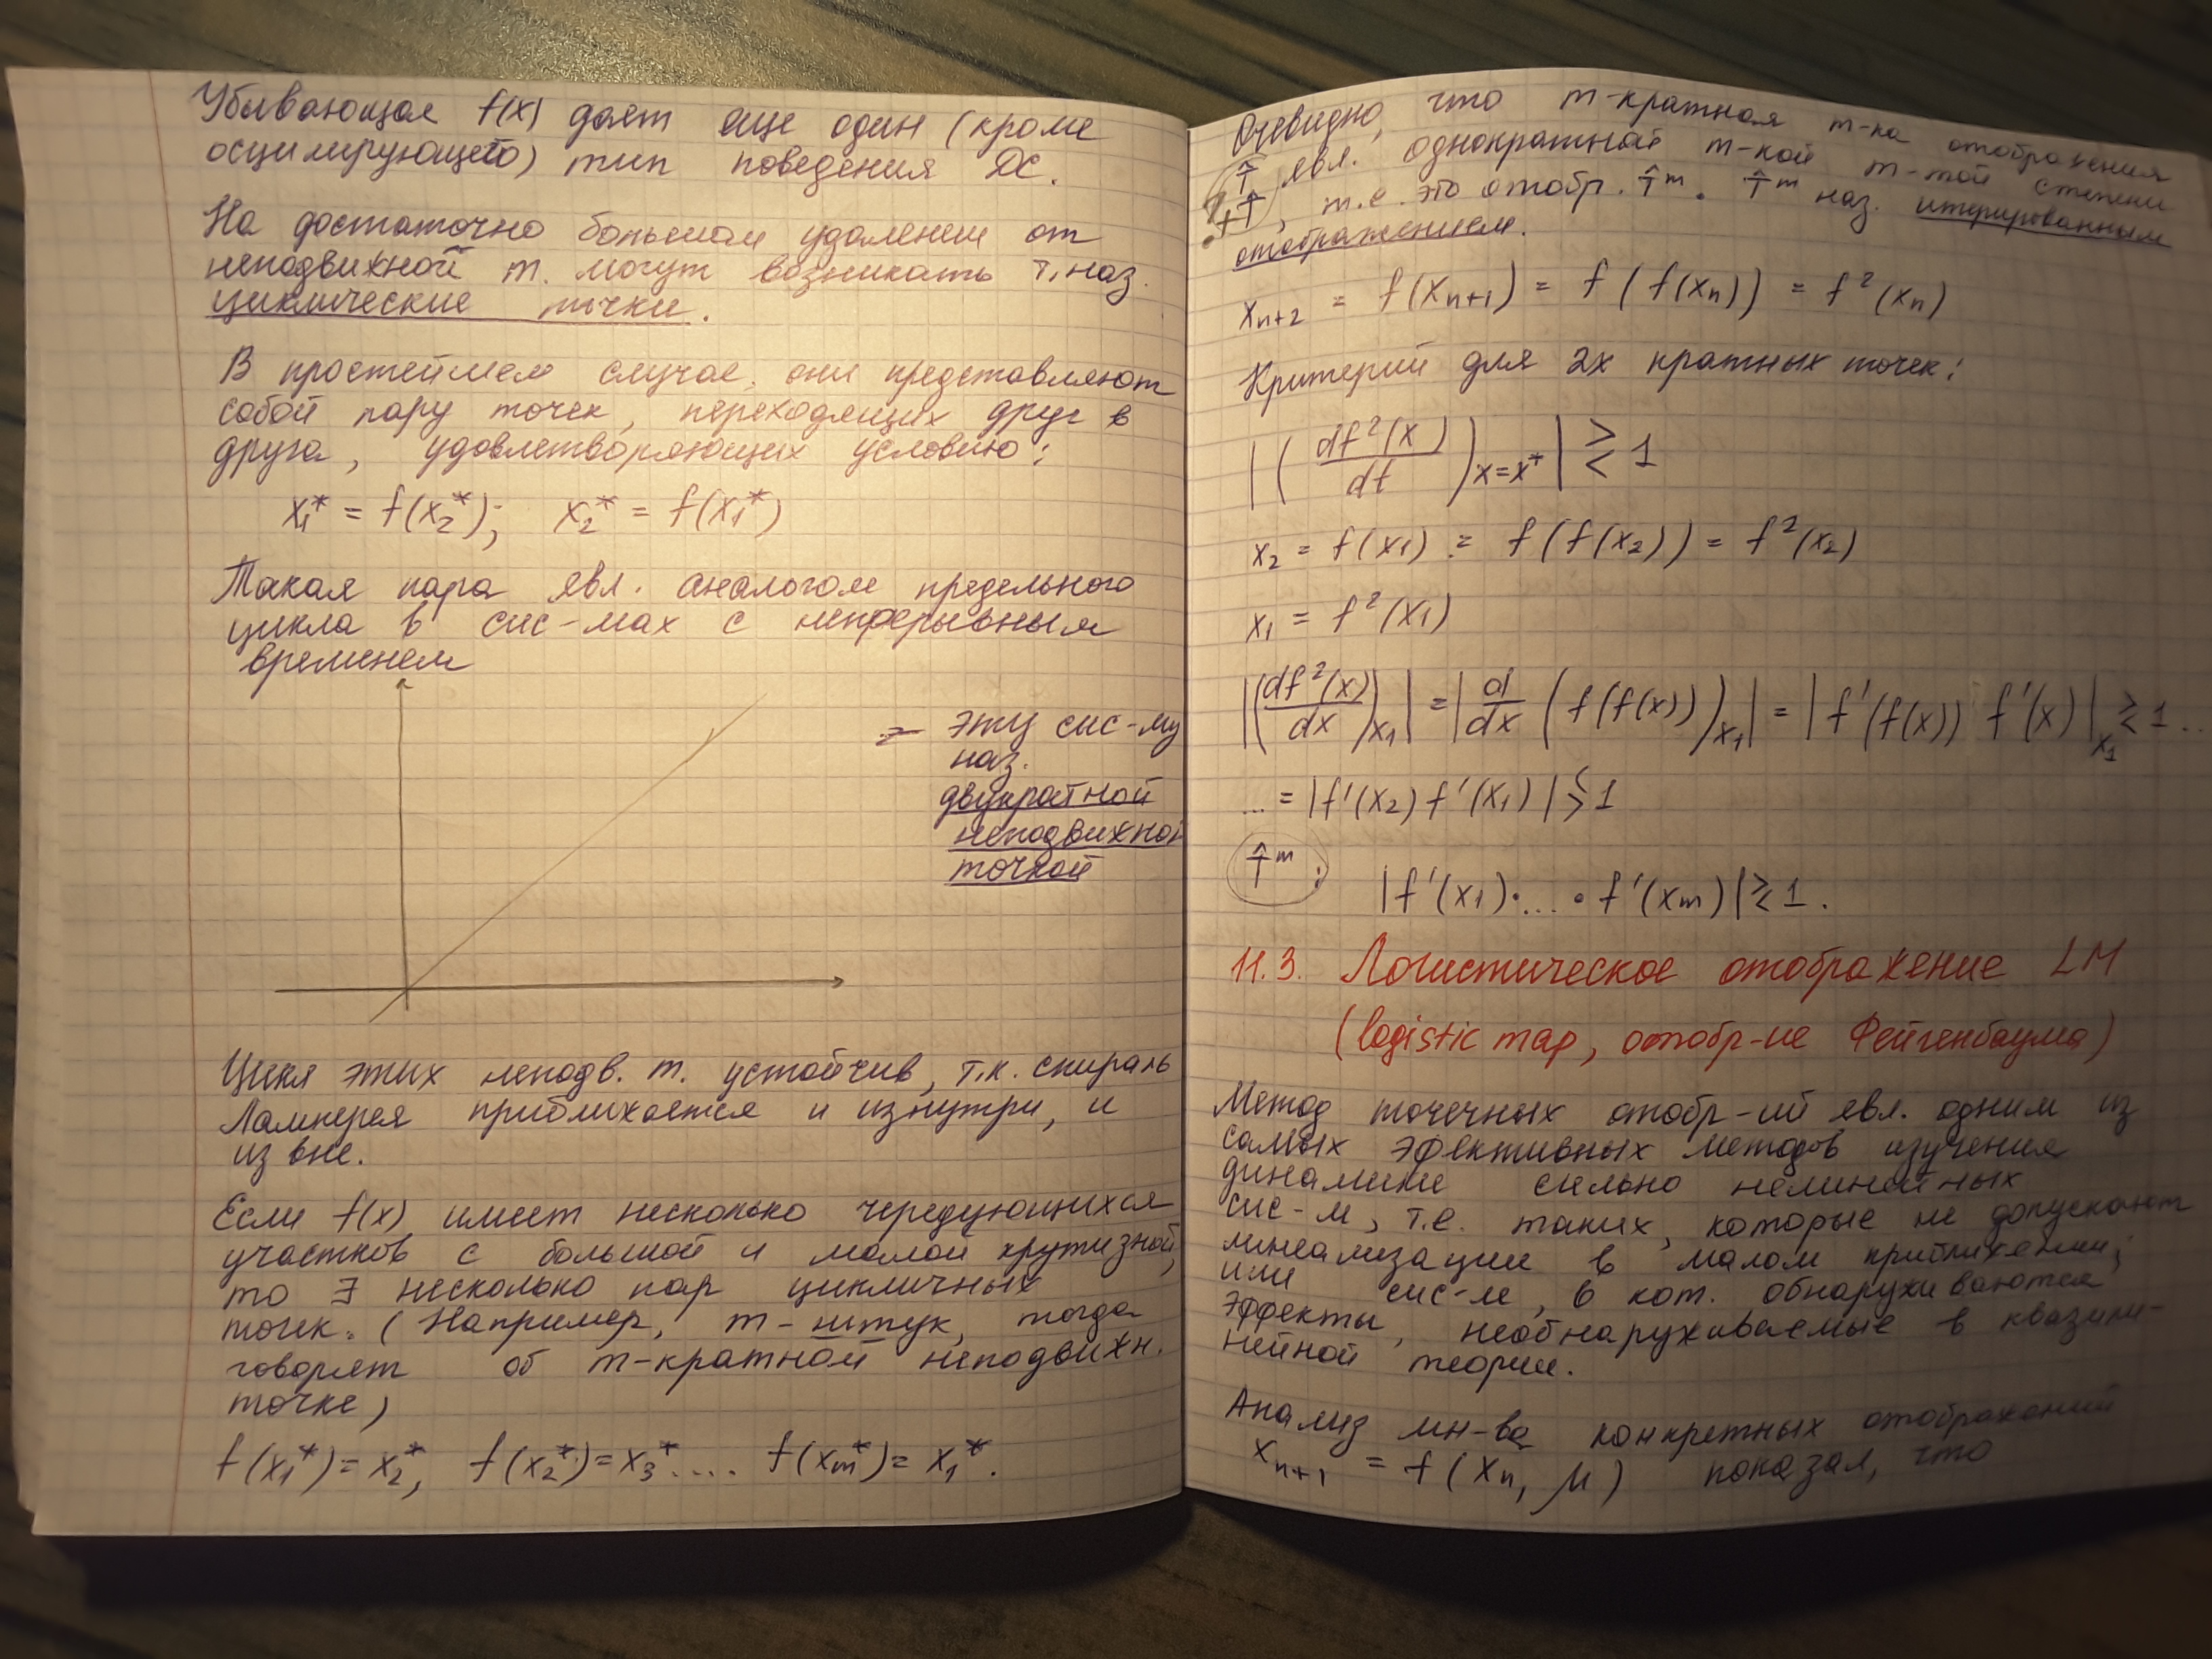 Убывающая f(x) дает еще один (кроме
осцилирующего) тип поведения ДС.
На достаточно большом удалении от
неподвижной т. могут возникать т.наз.
циклические точки.
В простейшем случае, они представляют
собой пару точек, переходящих друг в
друга, удовлетворяющих условию:
x₁* = f(x₂*); x₂* = f(x₁*)
Такая пара явл. аналогом предельного
цикла в сис-мах с непрерывным
временем
= эту сис-му
наз.
двукратной
неподвижной
точкой
Цикл этих неподв. т. устойчив, т.к. спираль
Ламерея приближается и изнутри, и
из вне.
Если f(x) имеет несколько чередующихся
участков с большой и малой крутизной,
то ∃ несколько пар цикличных
точек. (Например, m-штук, тогда
говорят об m-кратной неподвижн.
точке)
f(x₁*) = x₂*, f(x₂*) = x₃* .... f(xₘ*) = x₁*.
Очевидно, что m-кратная т-ка отображения
T̂ явл. однократной т-кой m-той степени
T̂, т.е. это отобр. T̂ᵐ. T̂ᵐ наз. итерированным
отображением.
xₙ₊₂ = f(xₙ₊₁) = f(f(xₙ)) = f²(xₙ)
Критерий для 2х кратных точек:
|(df²(x)/dt)ₓ₌ₓ*| ≷ 1
x₂ = f(x₁) = f(f(x₂)) = f²(x₂)
x₁ = f²(x₁)
|(df²(x)/dx)ₓ₁| = |d/dx (f(f(x)))ₓ₁| = |f'(f(x)) f'(x)|ₓ₁ ≷ 1 ...
... = |f'(x₂) f'(x₁)| ≶ 1
T̂ᵐ:
|f'(x₁)·...·f'(xₘ)| ≷ 1.
11.3. Логистическое отображение LM
(logistic map, отобр-ие Фейгенбаума)
Метод точечных отобр-ий явл. одним из
самых эфективных методов изучения
динамики сильно нелинейных
сис-м, т.е. таких, которые не допускают
линеализации в малом приближении;
или сис-м, в кот. обнаруживаются
эффекты, необнаруживаемые в квазили-
нейной теории.
Анализ мн-ва конкретных отображений
xₙ₊₁ = f(xₙ, μ) показал, что